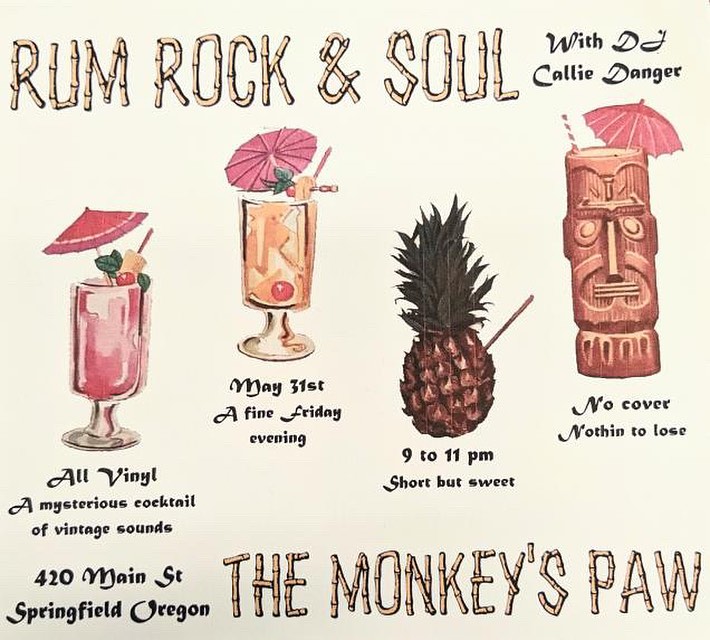 RUM ROCK & SOUL
With DJ
Callie Danger
All Vinyl
A mysterious cocktail
of vintage sounds
May 31st
A fine Friday
evening
9 to 11 pm
Short but sweet
No cover
Nothin to lose
420 Main St
Springfield Oregon
THE MONKEY'S PAW